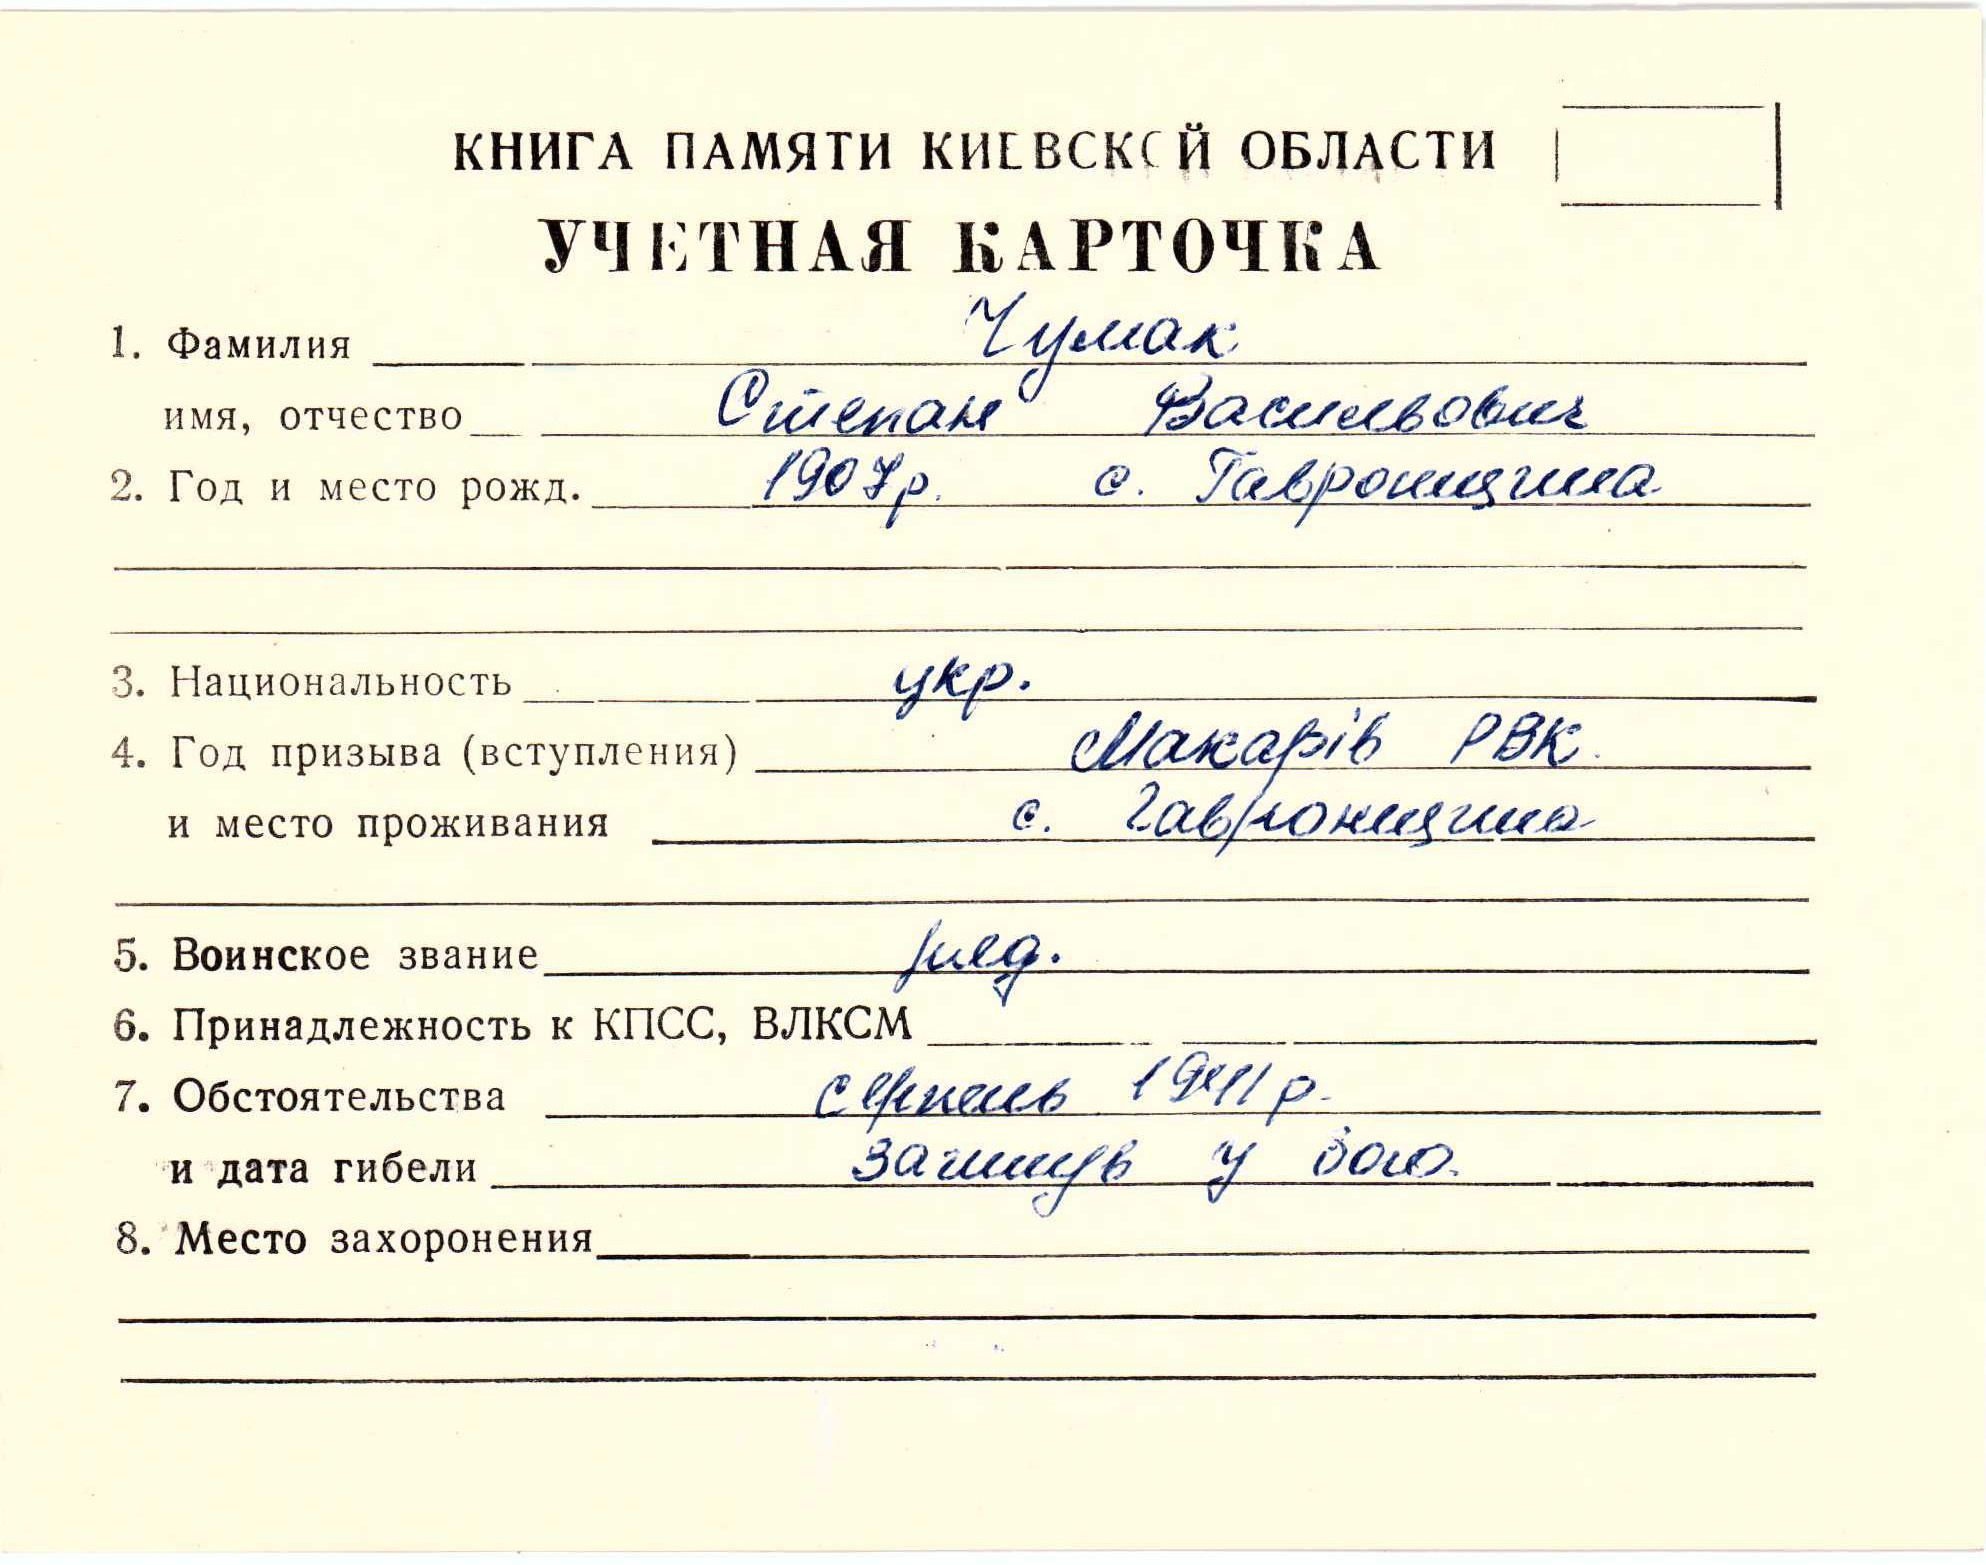 КНИГА ПАМЯТИ КИЕВСКОЙ ОБЛАСТИ
УЧЕТНАЯ КАРТОЧКА
1. Фамилия Чумак
имя, отчество Степан Васильович
2. Год и место рожд. 1907 р. с. Гавронщина
3. Национальность укр.
4. Год призыва (вступления) Макарів РВК
и место проживания с. Гавронщина
5. Воинское звание ряд.
6. Принадлежность к КПСС, ВЛКСМ
7. Обстоятельства серпень 1941 р.
и дата гибели загинув у бою.
8. Место захоронения